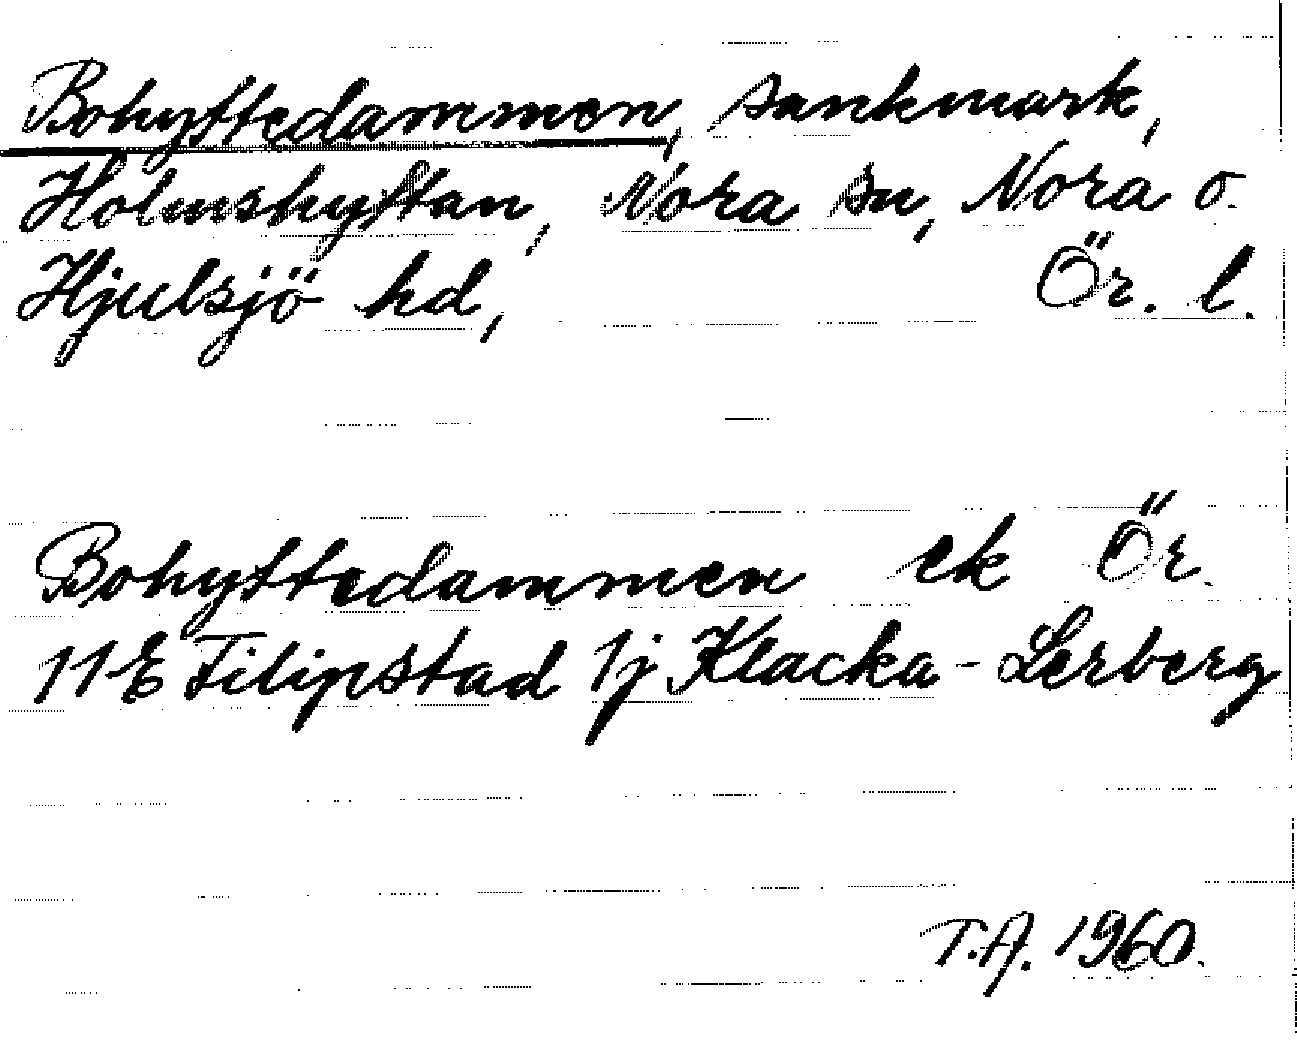 Bohyttedammen, sankmark,
Holmshyttan, Nora sn, Nora o.
Hjulsjö hd, Ör. l.
Bohyttedammen ek Ör.
11E Filipstad 1j Klacka-Lerberg
T.A. 1960.